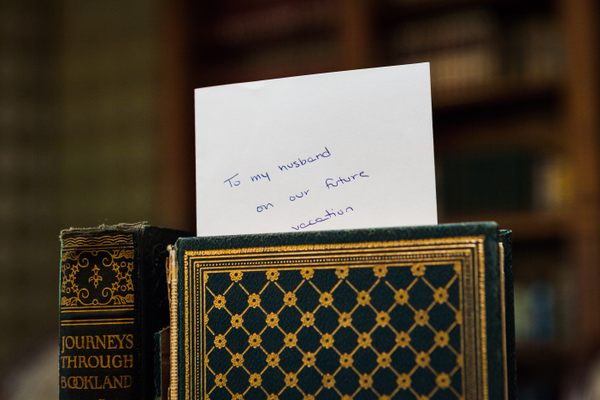 To my husband
on our future
vacation
JOURNEYS
THROUGH
BOOKLAND